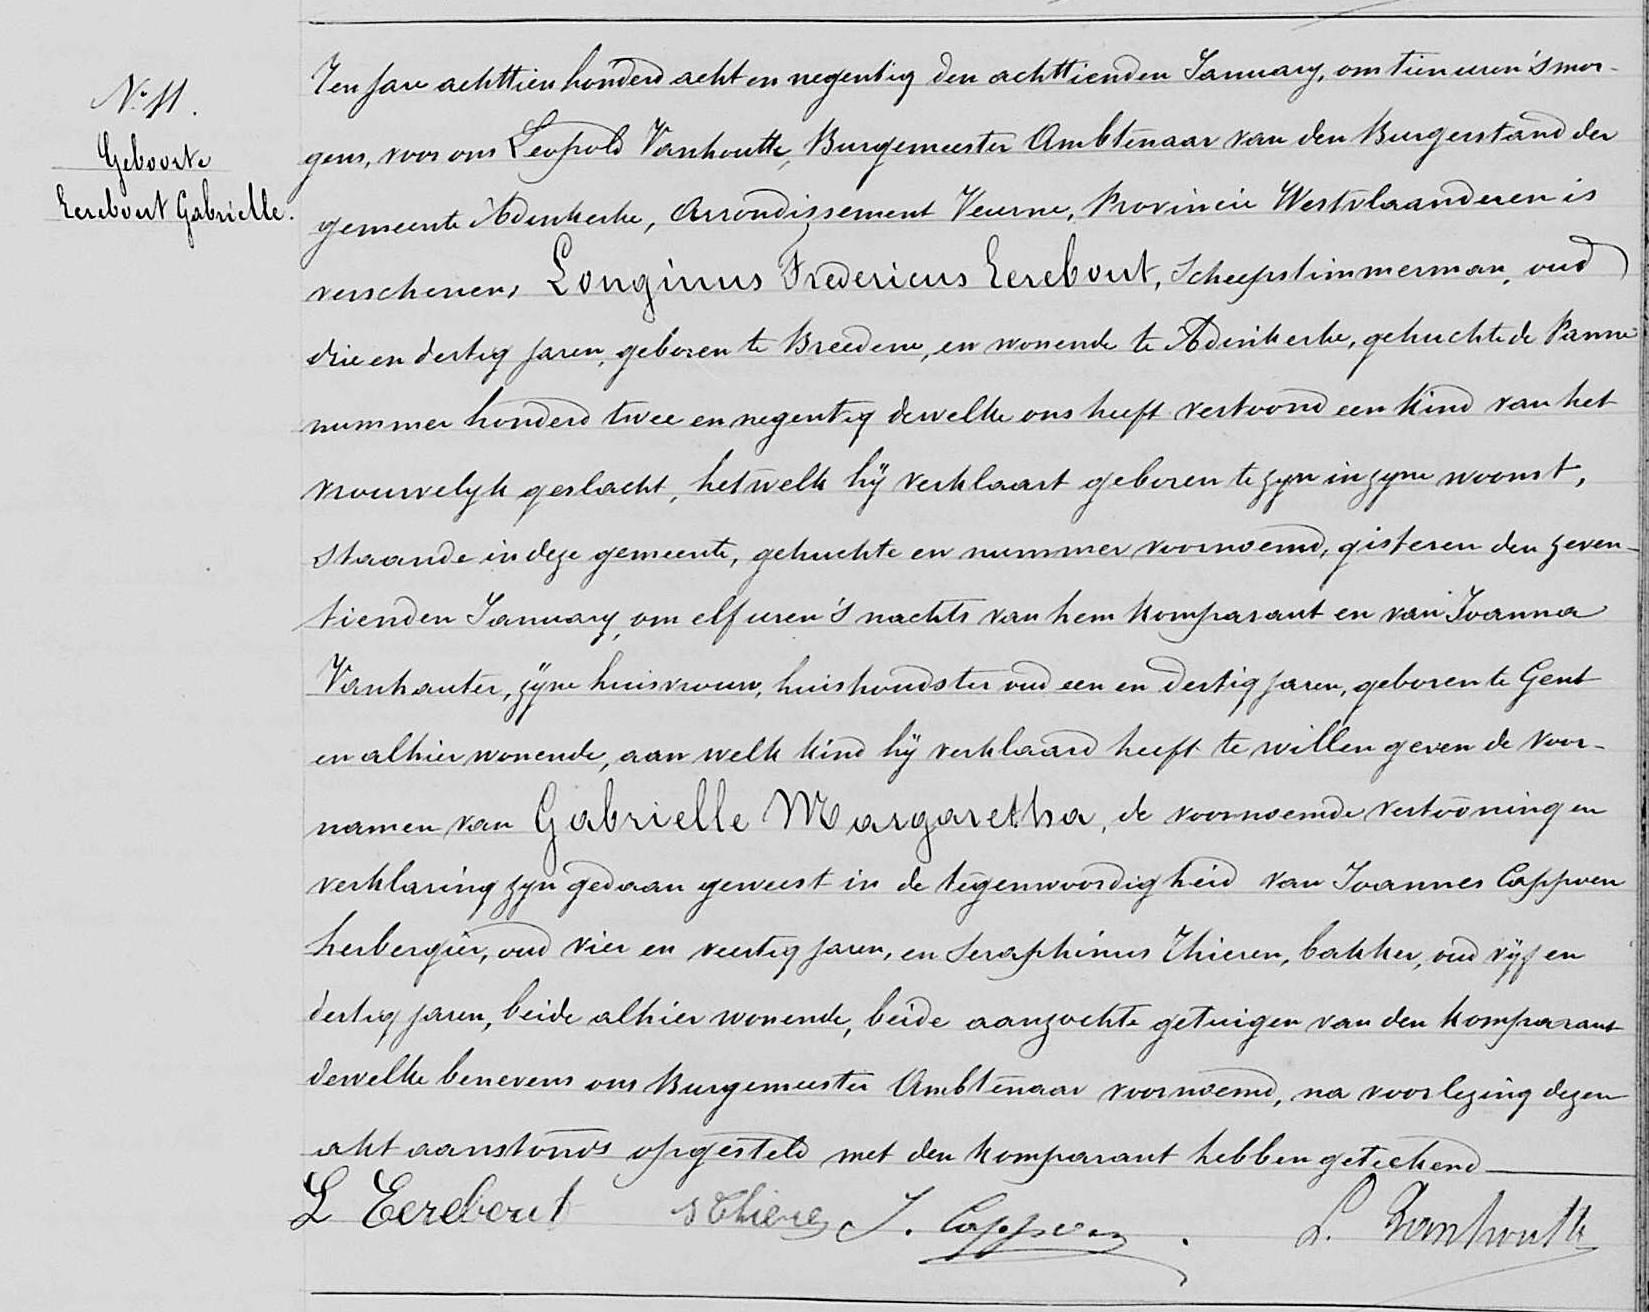 No 11.
Geboorte
Eerebout Gabrielle.
Ten jare achttien honderd acht en negentig den achttienden January, om tien uren 's mor-
gens, voor ons Leopold Vanhoutte, Burgemeester Ambtenaar van den Burgerstand der
gemeente Adinkerke, Arrondissement Veurne, Provincie Westvlaanderen is
verschenen, Longinus Fredericus Eerebout, Scheepstimmerman, oud
drie en dertig jaren, geboren te Breedene, en wonende te Adinkerke, gehuchte de Panne
nummer honderd twee en negentig dewelke ons heeft vertoond een kind van het
vrouwelyk geslacht, hetwelk hÿ verklaart geboren te zyn in zyne woonst,
staande in deze gemeente, gehuchte en nummer voornoemd, gisteren den zeven-
tienden January, om elf uren 's nachts van hem komparant en van Joanna
Vanhauter, zÿne huisvrouw, huishoudster oud een en dertig jaren, geboren te Gent
en alhier wonende, aan welk kind hÿ verklaard heeft te willen geven de voor-
namen van Gabrielle Margaretha, de voornoemde vertooning en
verklaring zyn gedaan geweest in de tegenwoordigheid van Joannes Cappoen
herbergier, oud vier en veertig jaren, en Seraphinus Thieren, bakker, oud vÿf en
dertig jaren, beide alhier wonende, beide aanzochte getuigen van den komparant
dewelke benevens ons Burgemeester Ambtenaar voornoemd, na voorlezing dezen
akt aanstonds opgesteld met den komparant hebben geteekend
L Eerebout S Thieren J. Cappoen. L. Vanhoutte